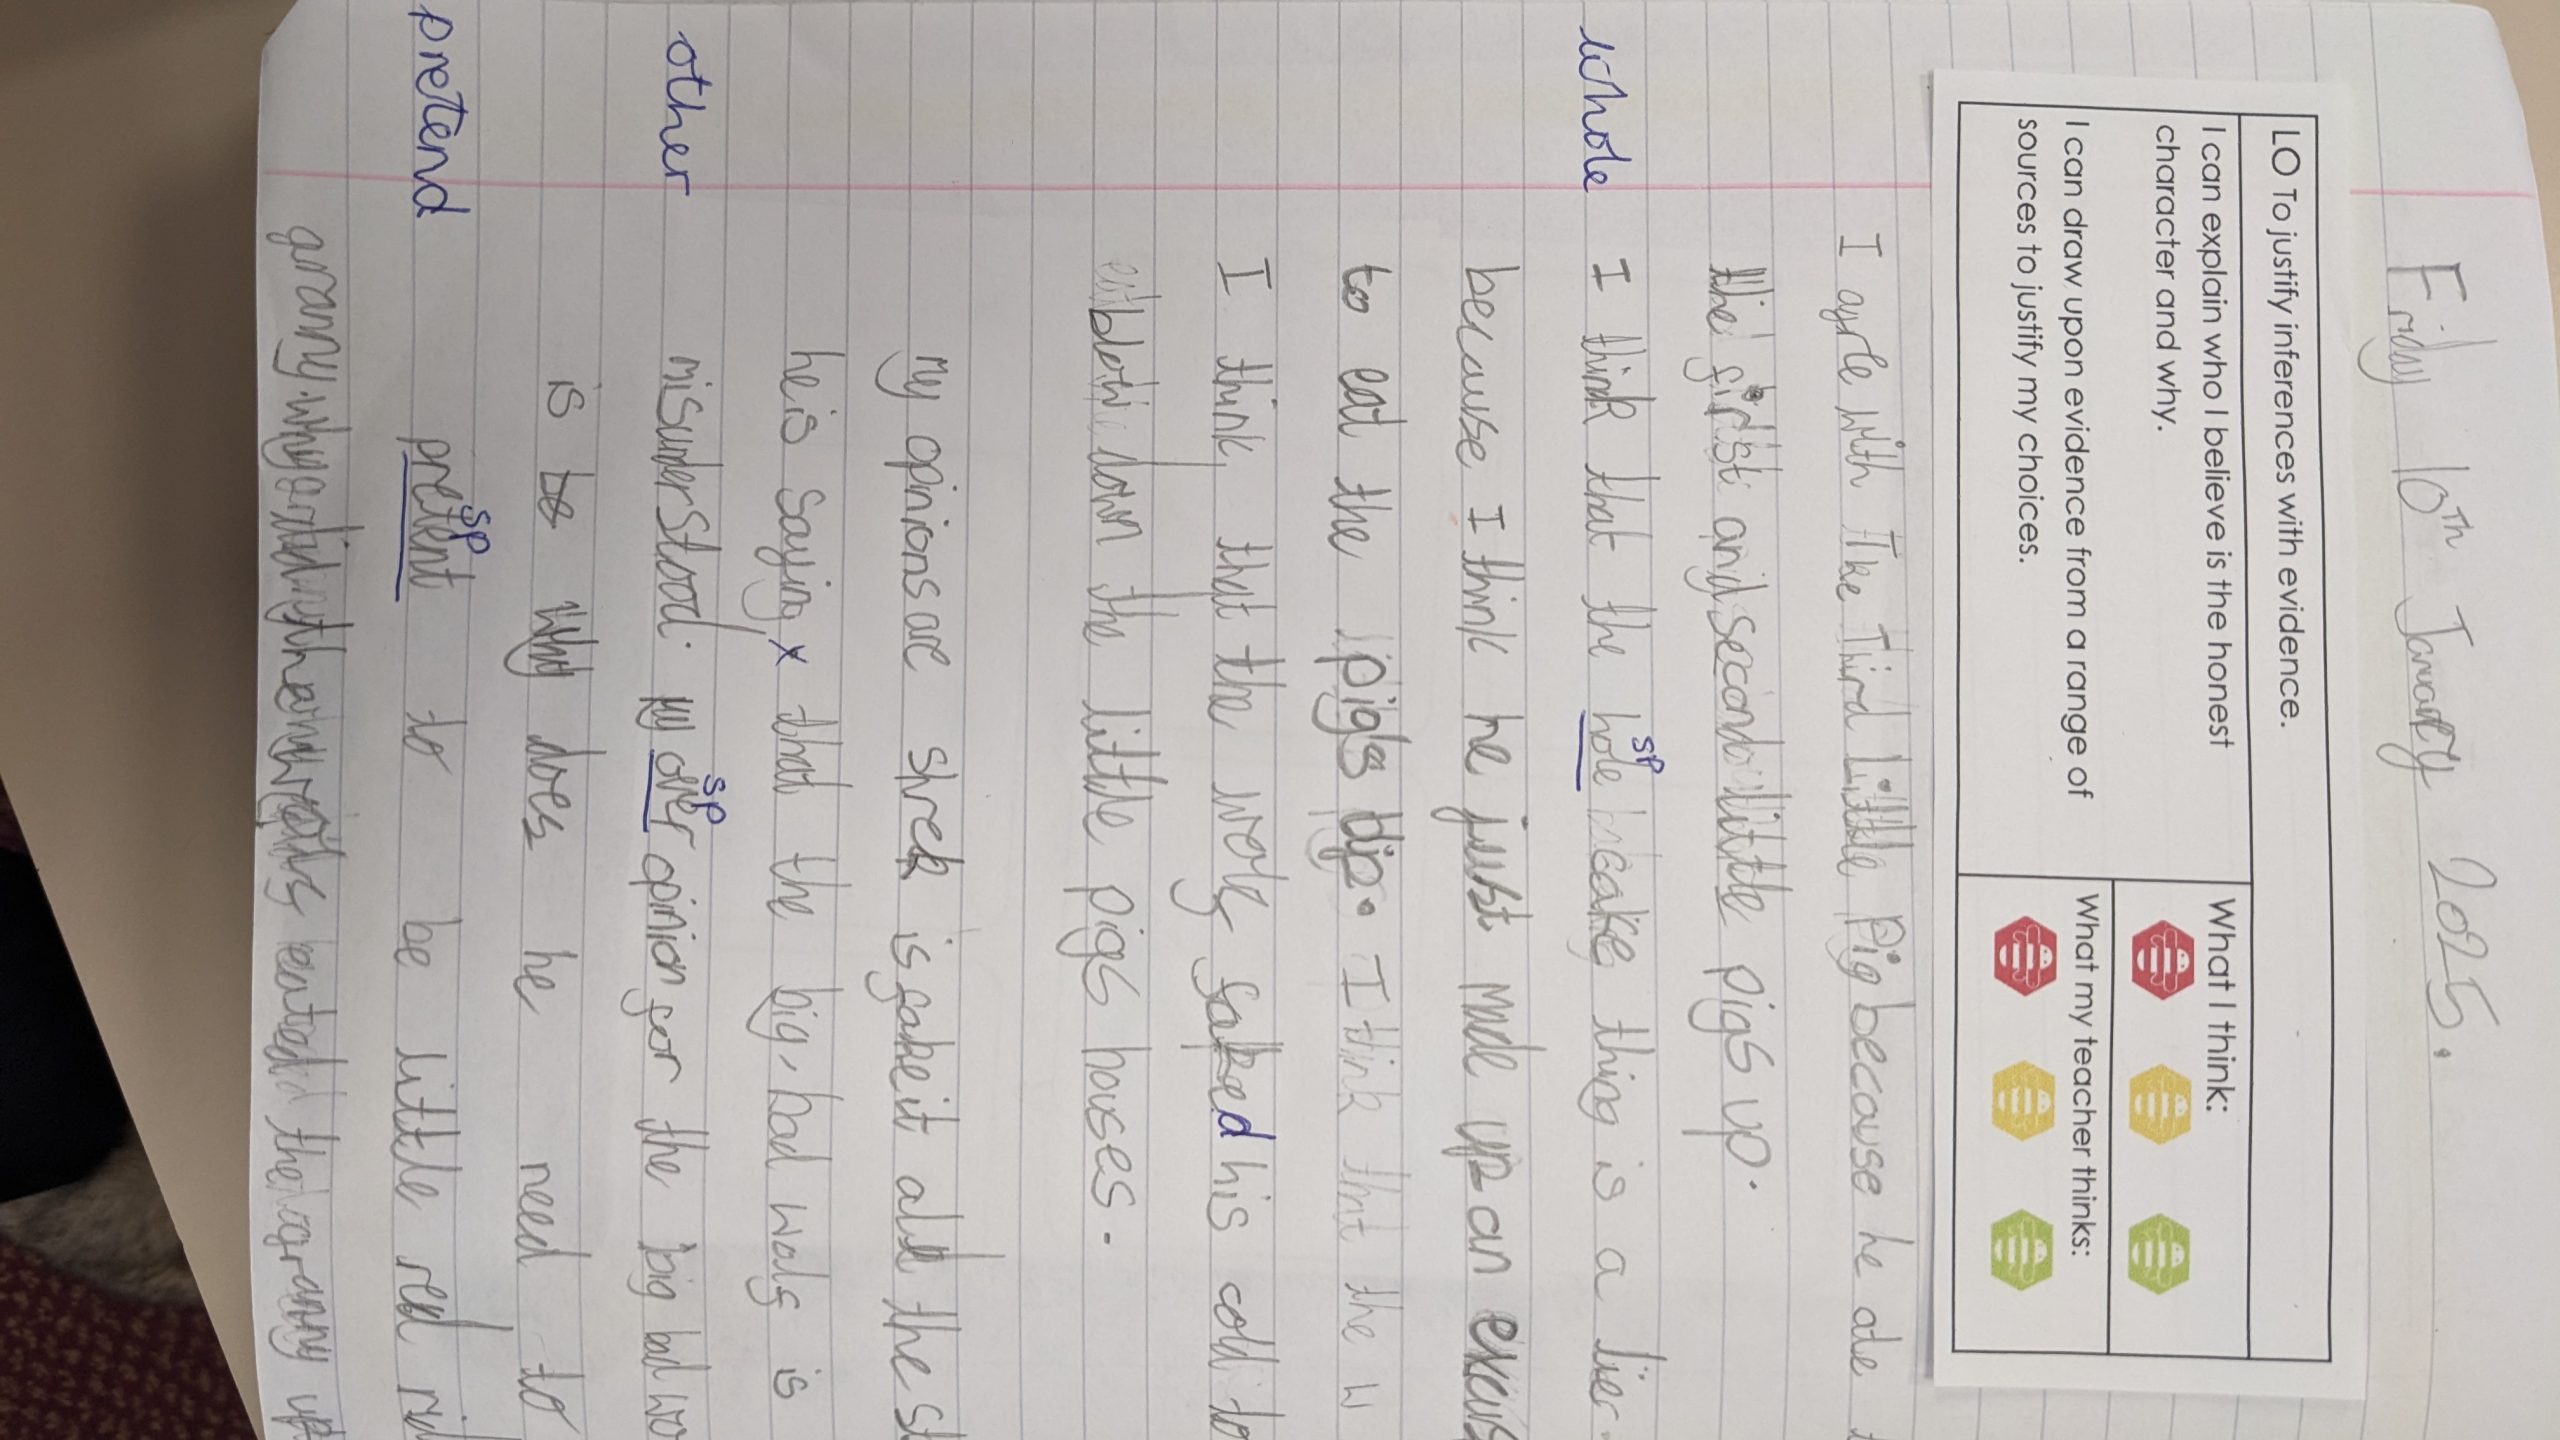 Friday 10th January 2025.
LO To justify inferences with evidence.
I can explain who I believe is the honest
character and why.
I can draw upon evidence from a range of
sources to justify my choices.
What I think:
What my teacher thinks:
I agre with The Third Little Pig because he ate
the first and second little pigs up.
whole I think that the hole sp cake thing is a lier
because I think he just made up an
to eat the pigs up. I think that the
I think that the wolf faked his cold to
down the little pigs houses.
my opinions are shrek is fake it all the
he is saying x that the big, bad wolf is
other misunderstood. my over sp opinion for the big bad
is why does he need to
pretend pretent sp to be little red
granny the wolf eated the granny up